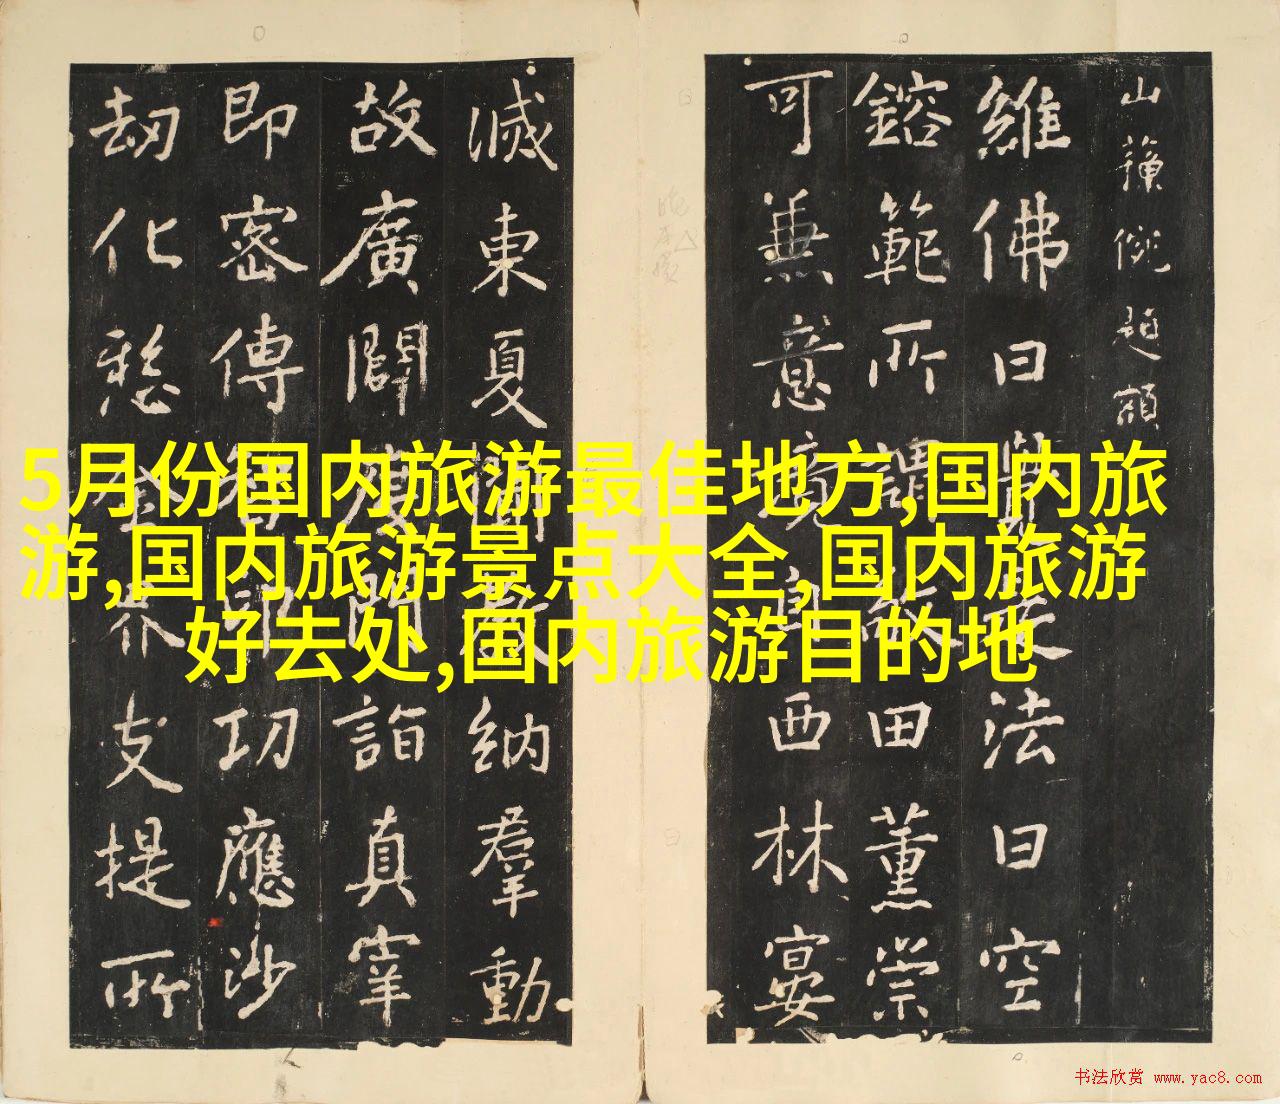 山額
維佛日法日空
鎔範所謂田薰崇
可兼意西林宴
滅東夏納羣動
故廣闢門詣真宰
即密傳印功應沙
劫化愁金界支提所
5月份国内旅游最佳地方,国内旅
游,国内旅游景点大全,国内旅游
好去处,国内旅游目的地
书法欣赏 www.yac8.com